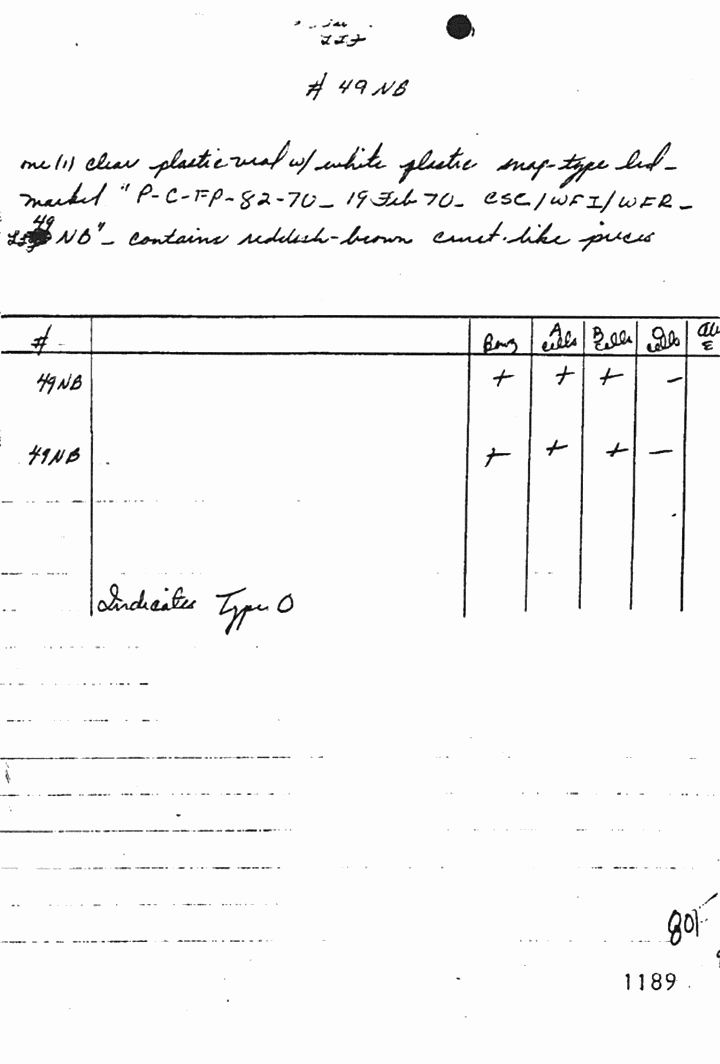 # 49 NB
one (1) clear plastic vial w/ white plastic snap-type lid -
marked "P-C-FP-82-70 - 19 Feb 70 - CSC/WFI/WFR -
49 NB" - contains reddish-brown crust-like pieces
# Benz A cells B cells O cells
49NB + + + -
49NB + + + -
Indicates Type O
801
1189